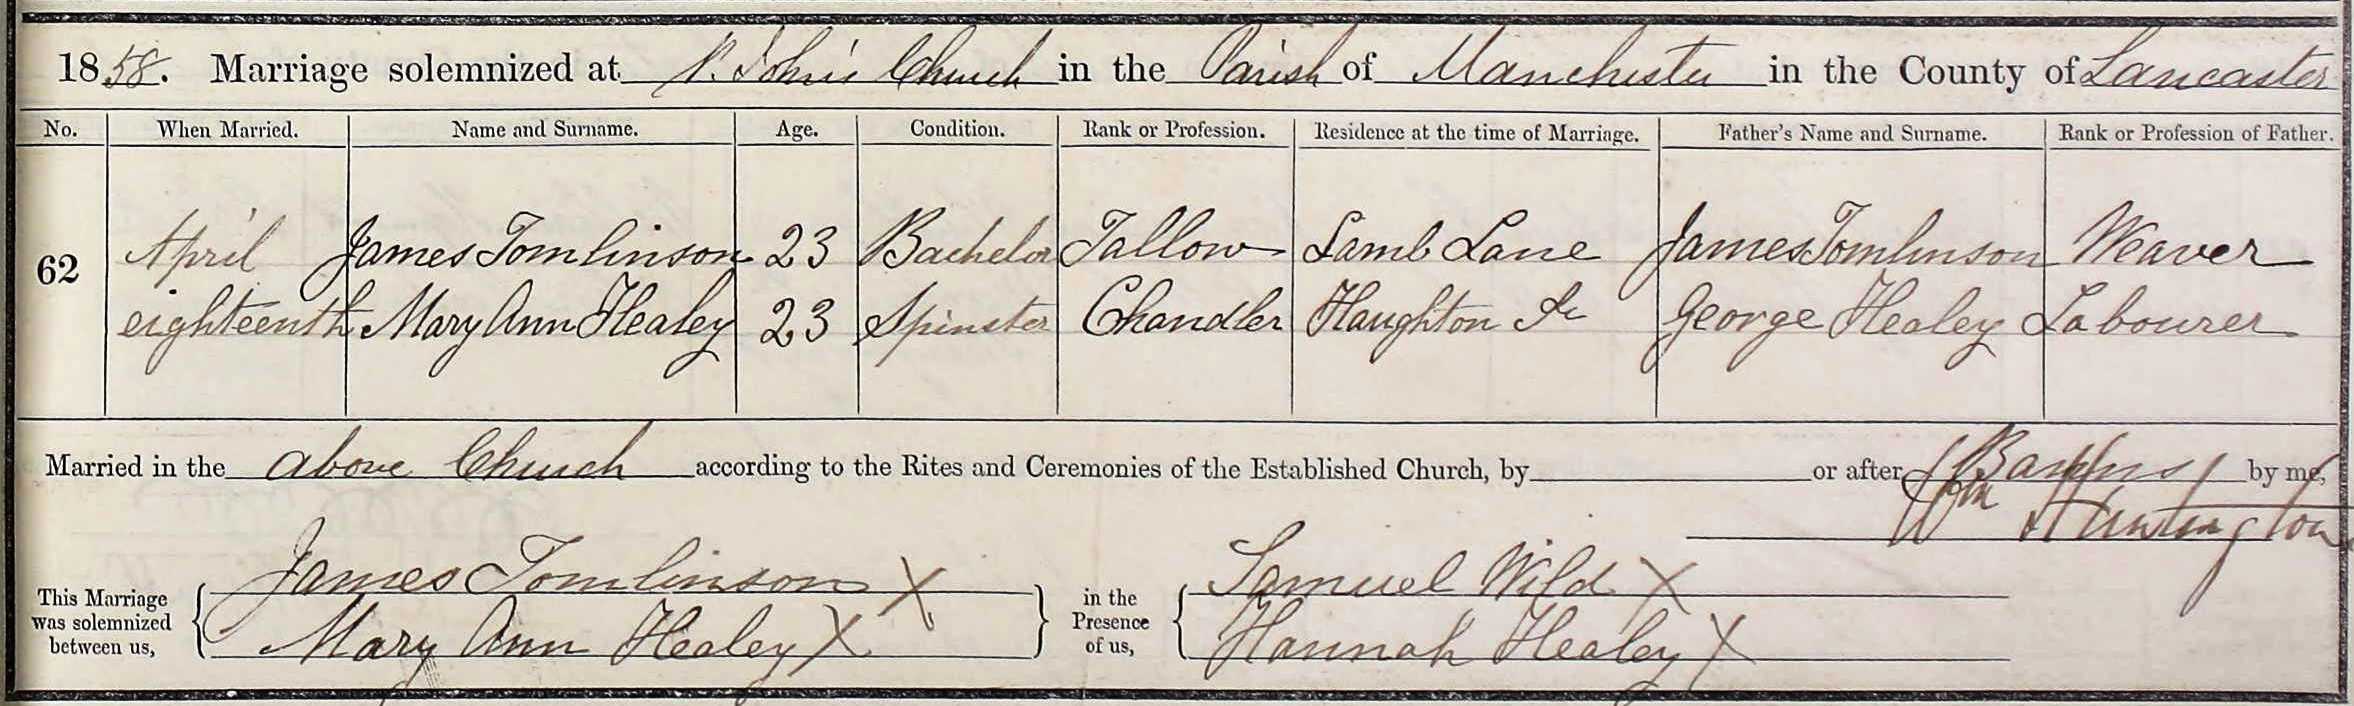 1858. Marriage solemnized at St. John's Church in the Parish of Manchester in the County of Lancaster
No. When Married. Name and Surname. Age. Condition. Rank or Profession. Residence at the time of Marriage. Father's Name and Surname. Rank or Profession of Father.
April James Tomlinson 23 Bachelor Tallow Lamb Lane James Tomlinson Weaver
62
eighteenth Mary Ann Healey 23 Spinster Chandler Haughton George Healey Labourer
Married in the above Church according to the Rites and Ceremonies of the Established Church, by or after Banns by me,
Wm Huntington
This Marriage was solemnized between us, James Tomlinson X Mary Ann Healey X in the Presence of us, Samuel Wild X Hannah Healey X